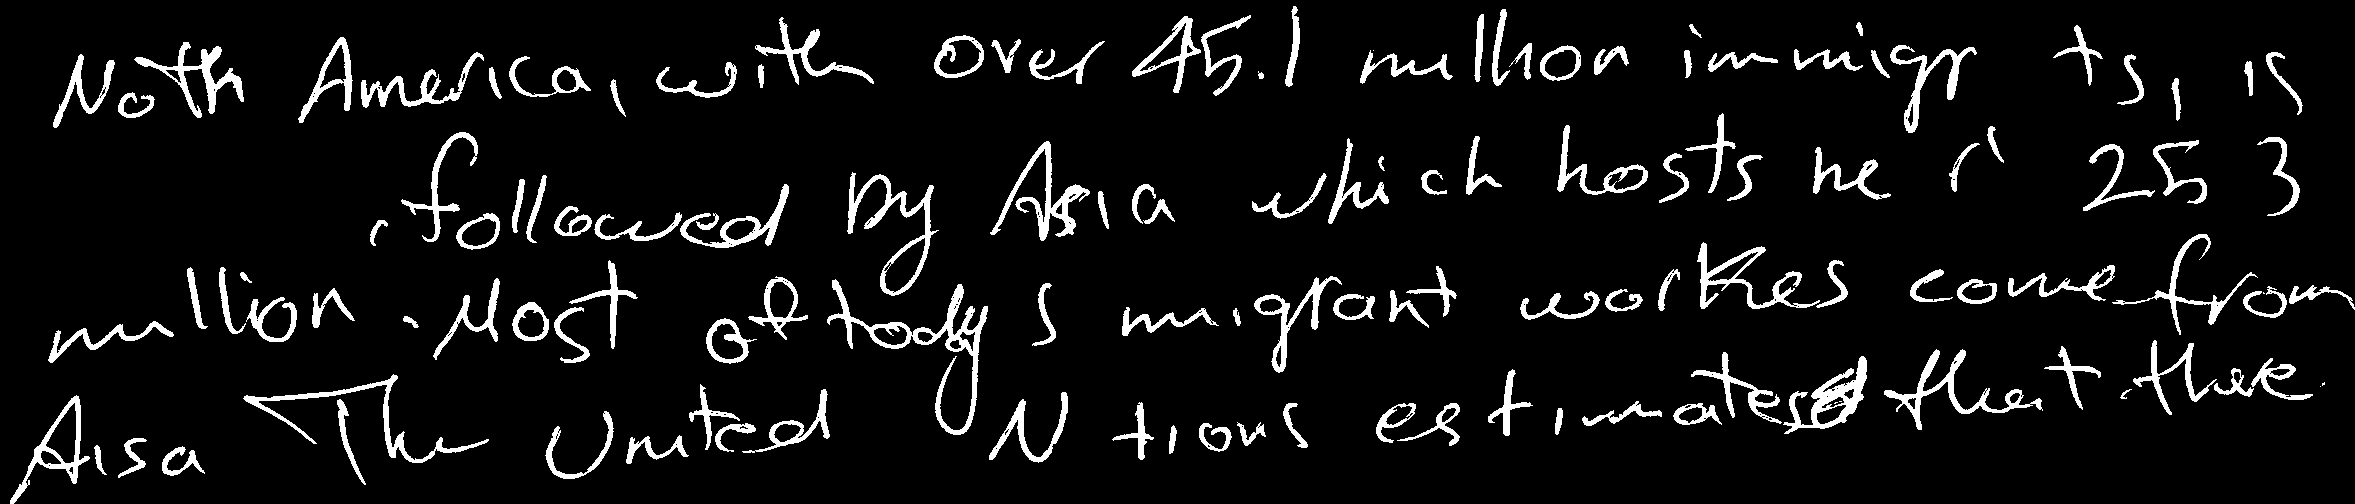 Noth America, with over 45.1 million immigr ts, is
, followed by Asia which hosts ne r 25 3
million. Most of today s migrant workes come from
Aisa The United N tions estimates that there